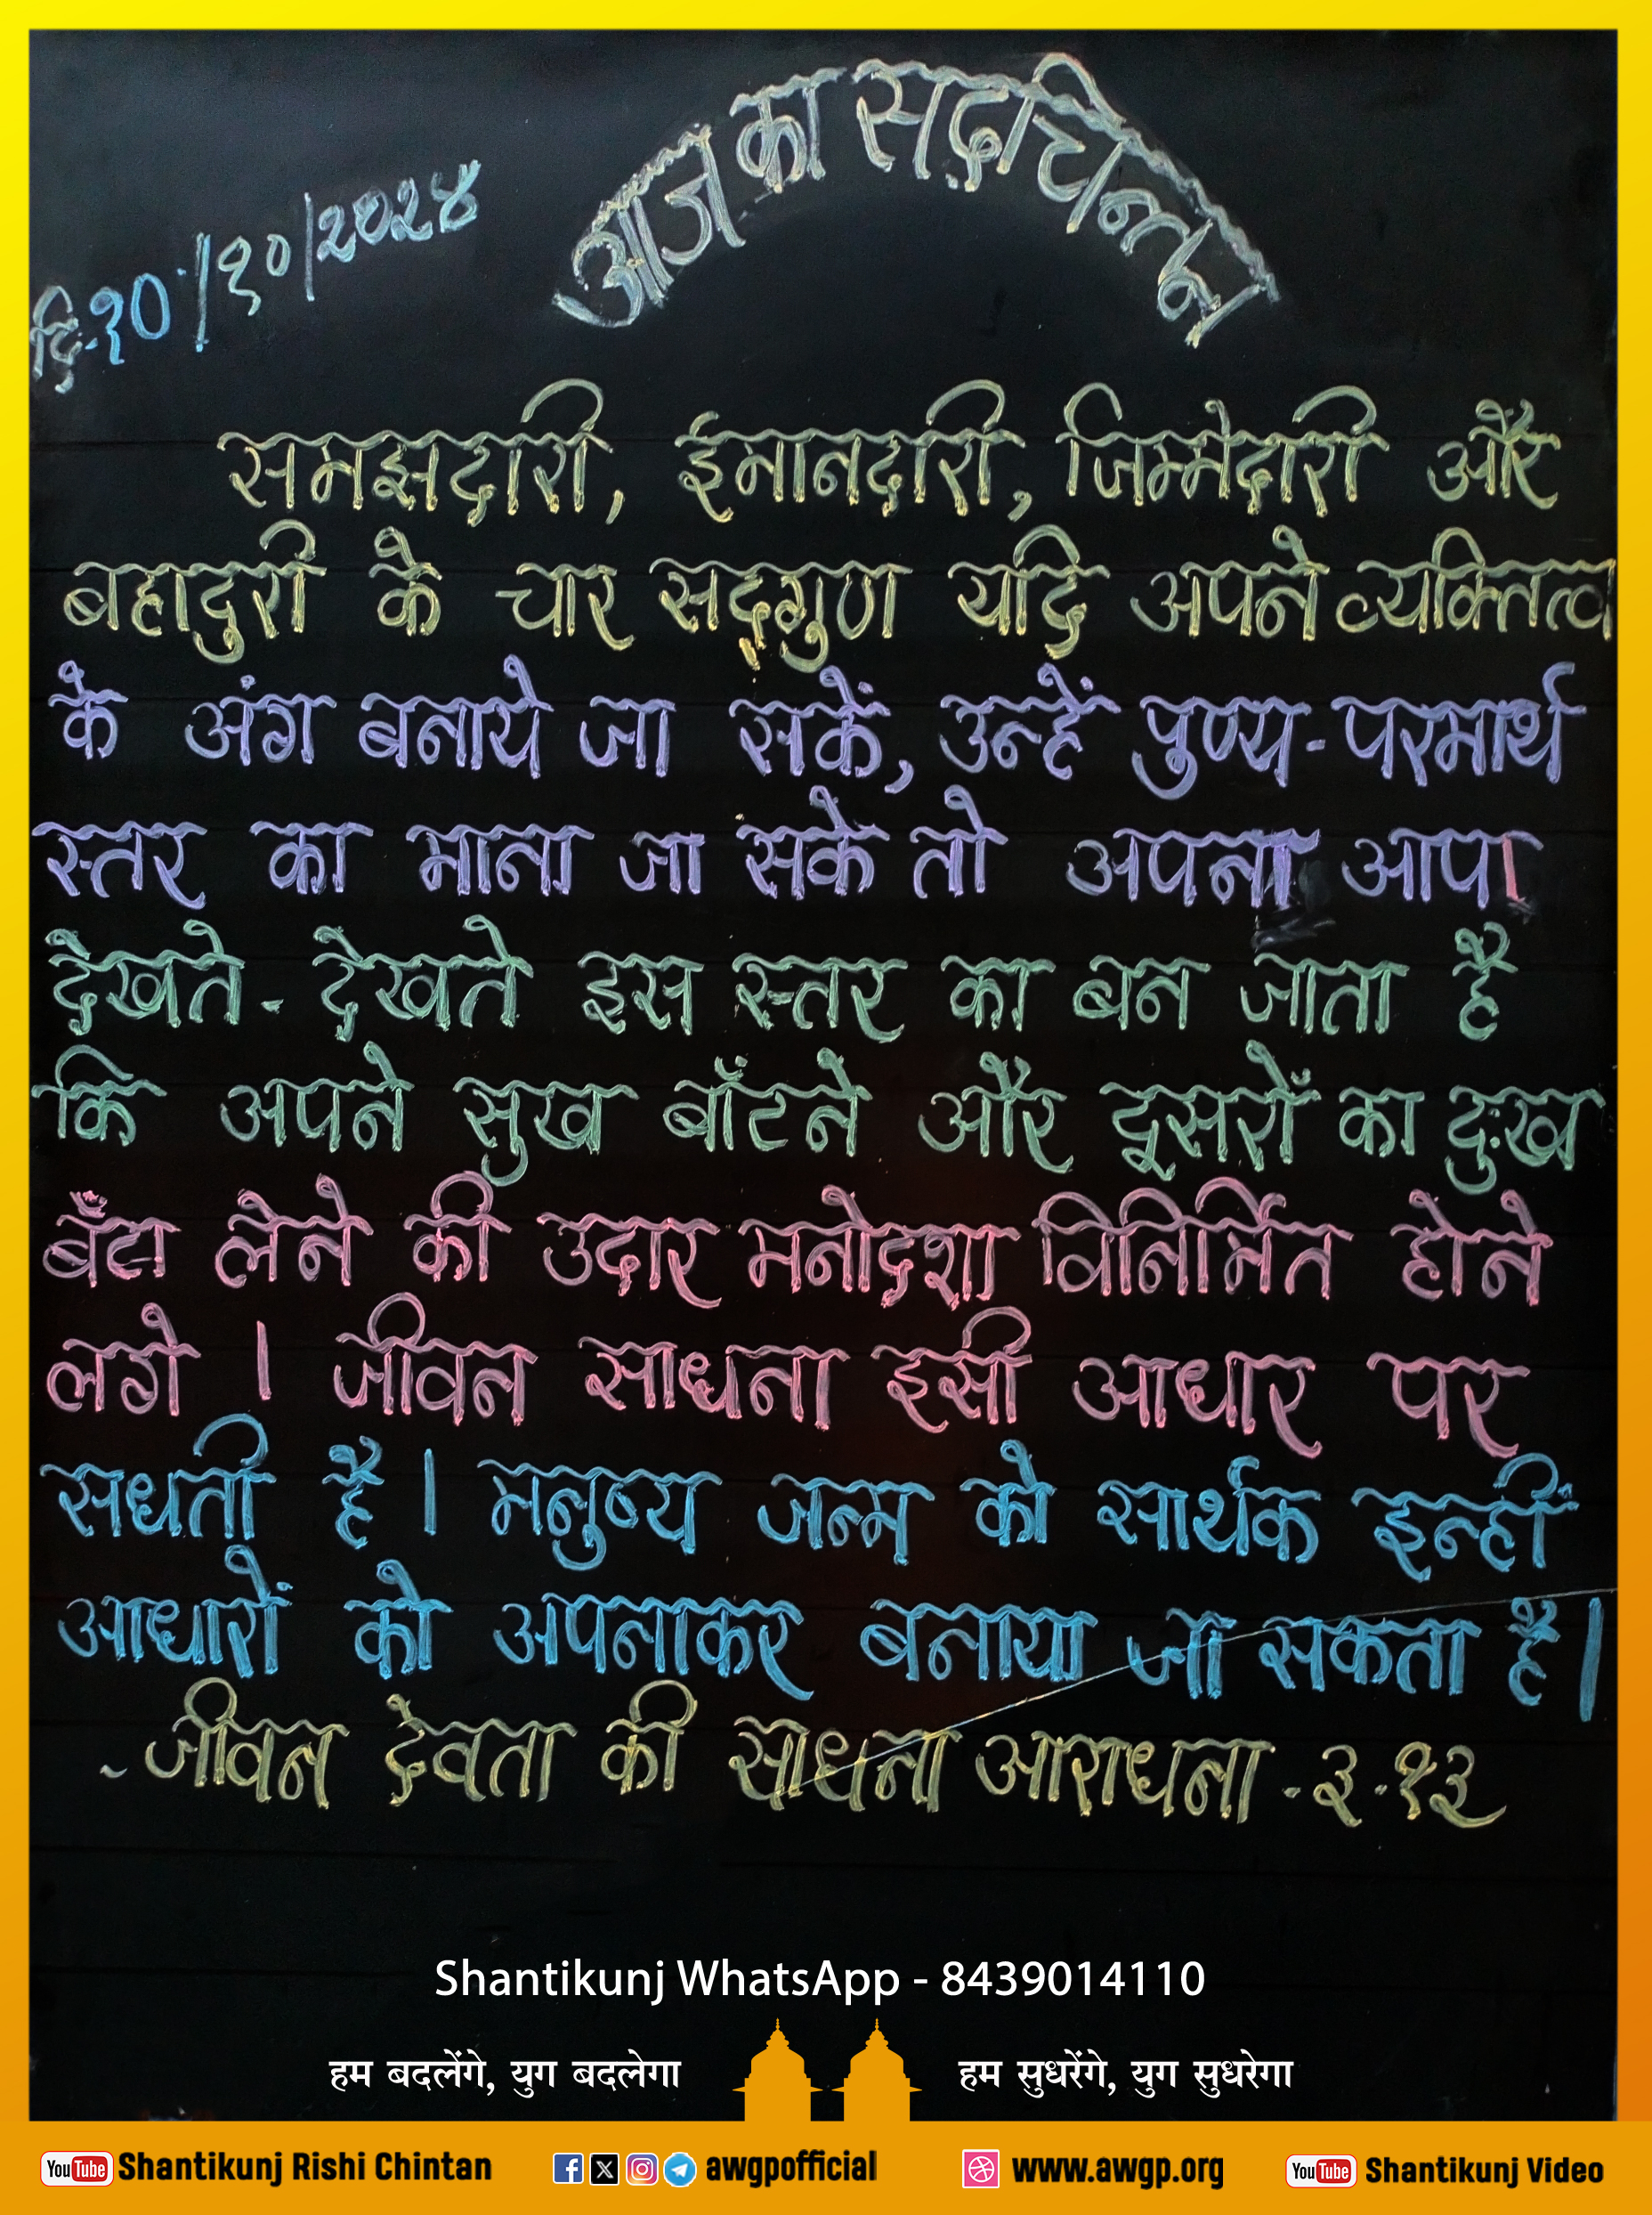 आज का सद्चिन्तन
दि.-१०/१०/२०२४
समझदारी, ईमानदारी, जिम्मेदारी और
बहादुरी के चार सद्गुण यदि अपने व्यक्तित्व
के अंग बनाये जा सकें, उन्हें पुण्य-परमार्थ
स्तर का माना जा सके तो अपना आपा
देखते-देखते इस स्तर का बन जाता है
कि अपने सुख बाँटने और दूसरों का दुःख
बँटा लेने की उदार मनोदशा विनिर्मित होने
लगे । जीवन साधना इसी आधार पर
सधती है । मनुष्य जन्म को सार्थक इन्हीं
आधारों को अपनाकर बनाया जा सकता है ।
- जीवन देवता की साधना आराधना - ३ - १३
Shantikunj WhatsApp - 8439014110
हम बदलेंगे, युग बदलेगा हम सुधरेंगे, युग सुधरेगा
YouTube Shantikunj Rishi Chintan awgpofficial www.awgp.org YouTube Shantikunj Video